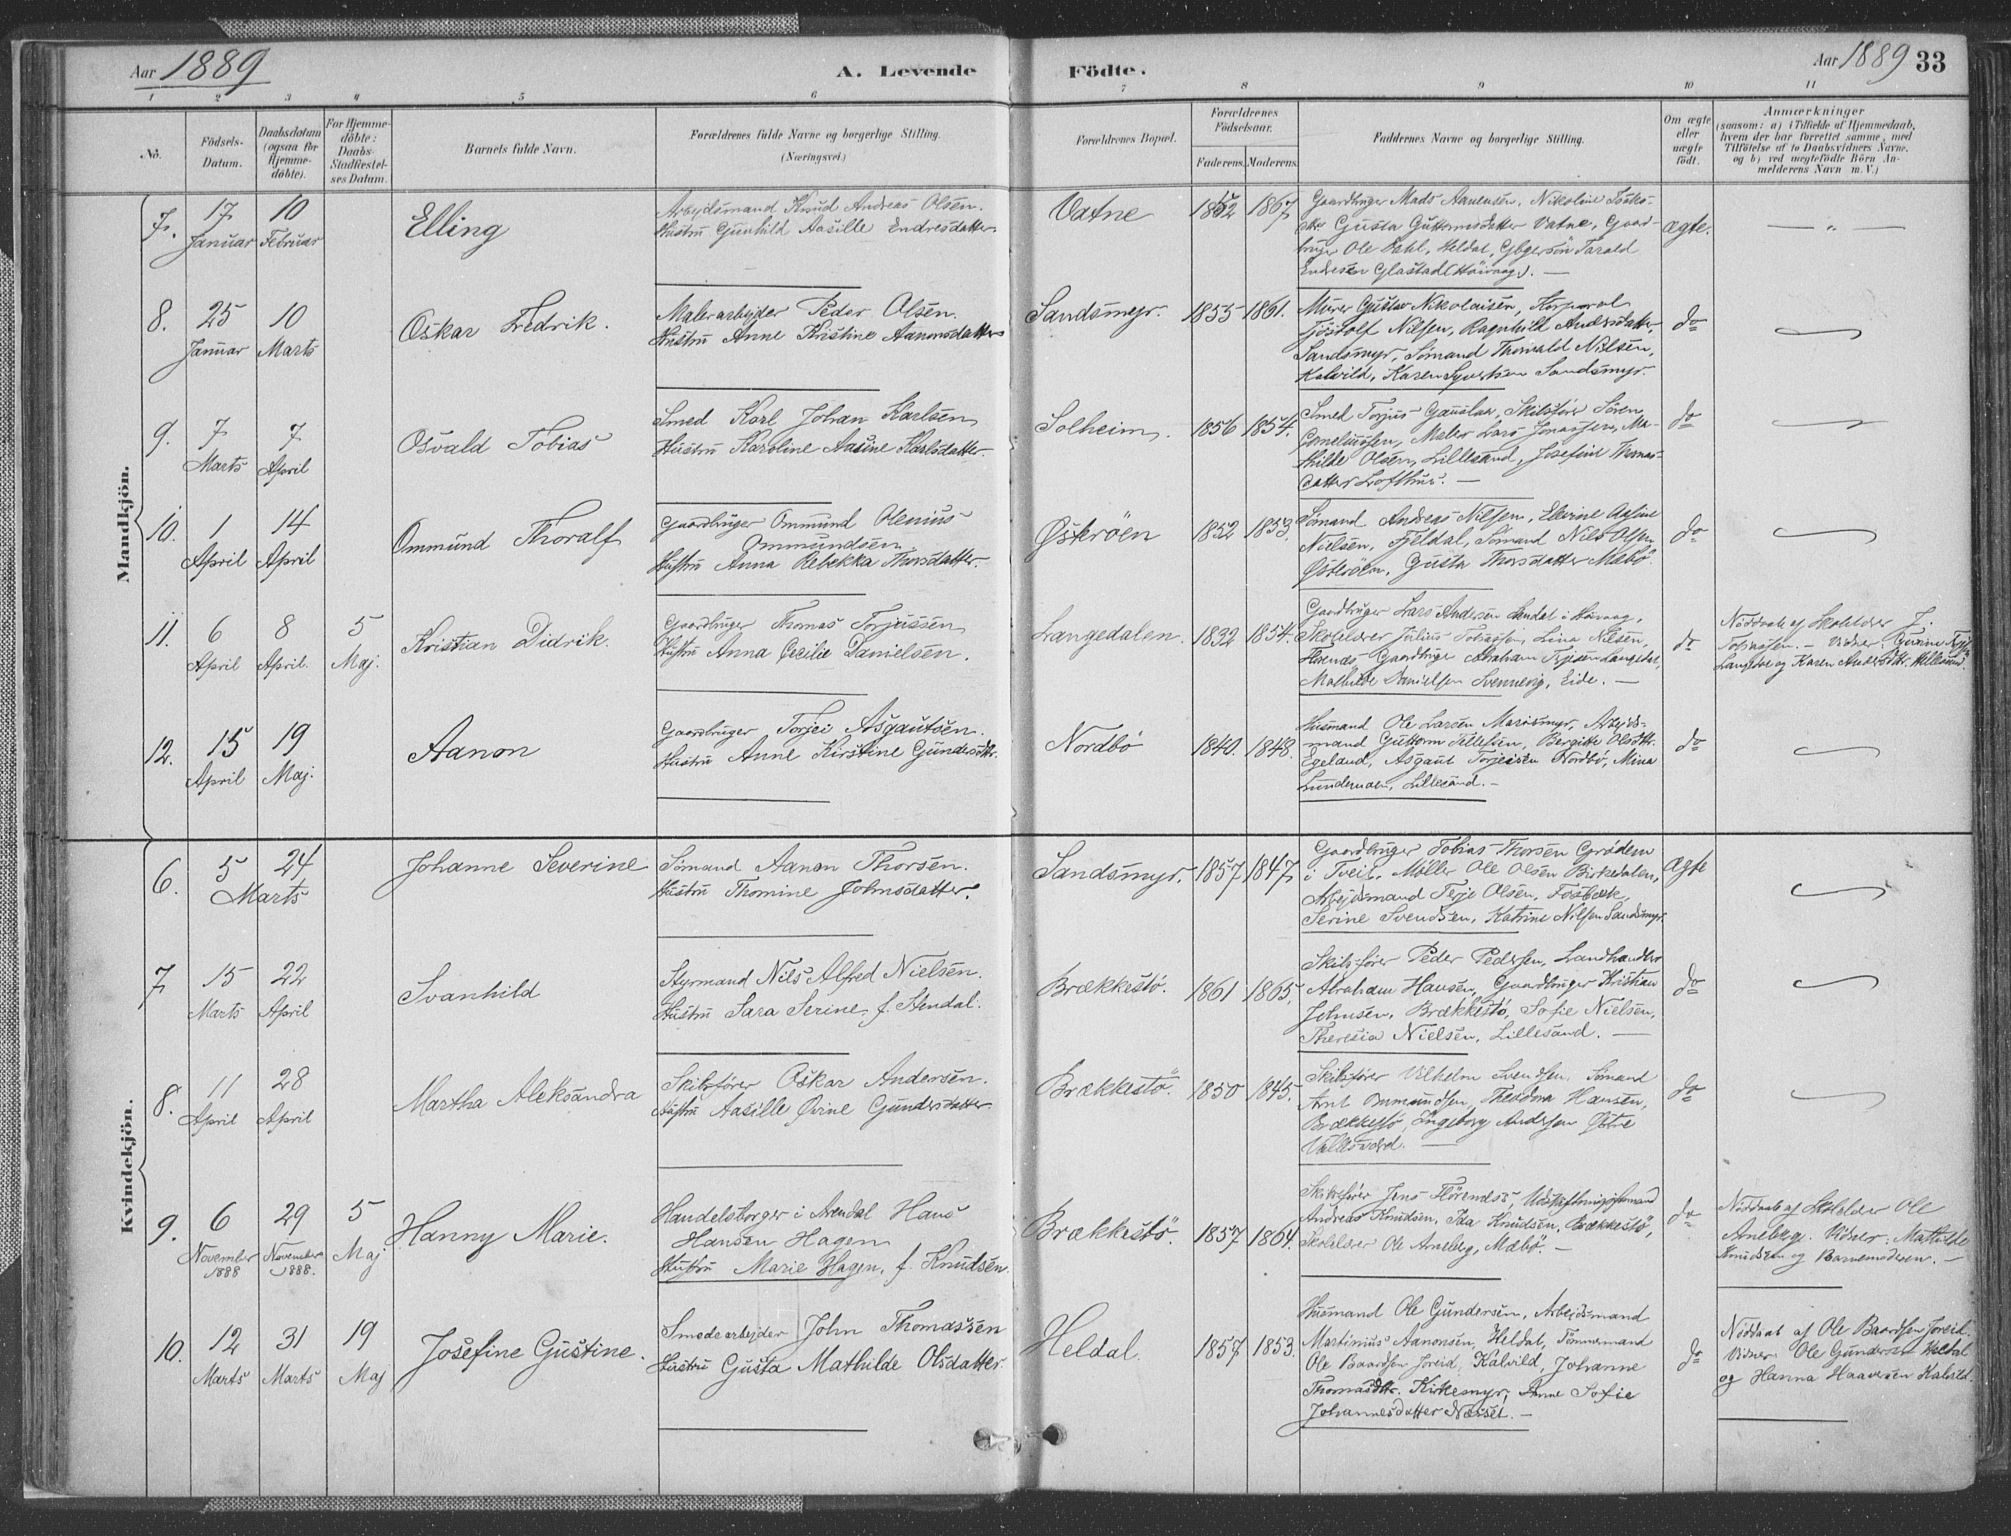 Aar 1889
A. Levende Födte.
Aar 1889 33
1 2 3 4 5 6 7 8 9 10 11
No.
Födsels-
Datum.
Daabsdatum
(ogsaa for
Hjemme-
döbte).
For Hjemme-
döbte:
Daabs-
Stadfæstel-
ses Datum.
Barnets fulde Navn.
Forældrenes fulde Navne og borgerlige Stilling.
(Næringsvei.)
Forældrenes Bopæl.
Forældrenes
Födselsaar.
Faderens. Moderens.
Faddernes Navne og borgerlige Stilling.
Om ægte
eller
uægte
födt.
Anmærkninger
(saasom: a) i Tilfælde af Hjemmedaab,
hvem der har forrettet samme, med
Tilföielse af to Daabsvidners Navne.
og b) ved uægtefödte Börn An-
melderens Navn m. V.)
Mandkjön.
7. 17 Januar
10 Februar
Elling
Arbeidsmand Knud Andreas Olsen.
Hustru Gunhild Aasille Endresdatter
Vatne
1862 1867
Gaardbruger Mads Aanensen, Nikolai
Gusta Guttormsdatter Vatne, Gaard-
bruger Ole Heldal, Gbgersön Tarald
Endresen Glastad (Höivaag). —
ægte.
— " —
8. 25 Januar
10 Marts
Oskar Fredrik.
Malerarbeider Peder Olsen.
Hustru Anne Kristine Aanonsdatter
Sandsmyr.
1855 1861.
Murer Gustav Nikolaisen, Korporal
Tjöstolf Nilsen, Ragnhild Andersdatter,
Sandsmyr, Sömand Thorvald Nilsen,
Kalvild, Karen Syvertsen Sandsmyr.
do
9. 7 Marts
7 April
Osvald Tobias
Smed Karl Johan Karlsen
Hustru Karoline Aasine Karlsdatter.
Solheim.
1856 1854.
Smed Torjus Gauslaa, Skibsförer Sören
Corneliussen, Maler Lars Jonassen, Ma-
thilde Olsen, Lillesand, Josefine Thomas-
datter Lofthus. —
do
10. 1 April
14 April
Ommund Thoralf
Gaardbruger Ommund Olenius
Ommundsen
Hustru Anna Rebekka Thorsdatter.
Østeröen
1852 1853.
Sömand Andreas Nilsen, Elevine
Nielsen, Fjeldal, Sömand Nils Olsen
Østeröen, Gusta Thorsdatter Mæbö.
do
11. 6 April
8 April.
5 Maj.
Kristian Didrik.
Gaardbruger Thomas Torjussen
Hustru Anna Cecilie Danielsen.
Langedalen.
1832 1854.
Gaardbruger Lars Andersen i Höivaag,
Skoleldrer Julius Tobiassen, Lina Nilsen,
Gaardbruger Abraham
Mathilde Danielsen Svennevig, Eide. —
do
Nöddaab af Skolelder J.
Tobiassen. — Vidner:
og Karen Andersdtr.
12. 15 April
19 Maj.
Aanon
Gaardbruger Torjei Asgautsen.
Hustru Anne Kirstine Gundersdtr.
Nordbö
1840. 1848.
Husmand Ole Larsen Mariesmyr, Arbeids-
mand Guttorm Tellefsen, Bergitte Olsdtr.
Egeland, Asgaut Torjeisen Nordbö, Mina
Lillesand. —
do
Kvindekjön.
6. 5 24
Marts
Johanne Severine
Sömand Aanon Thorsen.
Hustru Thomine Johnsdatter.
Sandsmyr.
1857 1847
Gaardbruger Tobias Thorsen Grödem
i Tveit, Möller Ole Olsen Birkedalen,
Arbejdsmand Terje Olsen, Fosbæk,
Serine Svendsen, Katrine Nilsen Sandsmyr
Ægte
7. 15 Marts
22 April
Svanhild
Styrmand Nils Alfred Nielsen.
Hustru Sara Serine, f. Stendal.
Brækkestö.
1861 1865.
Skibsförer Peder Pedersen, Landhandler
Abraham Hansen, Gaardbruger Kristian
Johnsen, Brækkestö, Sofie Nielsen,
Theresia Nielsen, Lillesand. —
do
8. 11 April
28 April
Martha Aleksandra
Skibsförer Oskar Andersen.
Hustru Aasille Gundersdatter.
Brækkestö.
1850 1845.
Skibsförer Vilhelm Svendsen, Sömand
Arnt Ommundsen, Theodora Hansen,
Brækkestö, Ingeborg Andersen Østre
Vallesværd. —
do
9. 6 November 1888
29 November 1888.
5 Maj
Hanny Marie.
Handelsborger i Arendal Hans
Hansen Hagen
Hustru Marie Hagen, f. Knudsen.
Brækkestö.
1857 1864.
Skibsförer Jens Flörenæs,
Andreas Knudsen, Ida Knudsen, Brækkestö,
Skolelder Ole Arneberg, Mæbö. —
do
Nöddaab af Skolelder Ole
Arneberg. Vidner: Mathilde
Knudsen og Barnemoderen. —
10. 12 Marts
31 Marts
19 Maj
Josefine Gustine.
Smedearbejder John Thomassen
Hustru Gusta Mathilde Olsdatter.
Heldal
1857 1853.
Husmand Ole Gundersen, Arbejdsmand
Martinius Aanonsen, Heldal, Tömmermand
Ole Baardsen Joreid, Kalvild, Johanne
Thomasdtr. Kirkemyr, Anne Sofie
Johannesdatter Næsset. —
do
Nöddaab af Ole Baardsen Joreid.
Vidner Ole Gundersen Heldal
og Hanna Haaversen Kalvild.